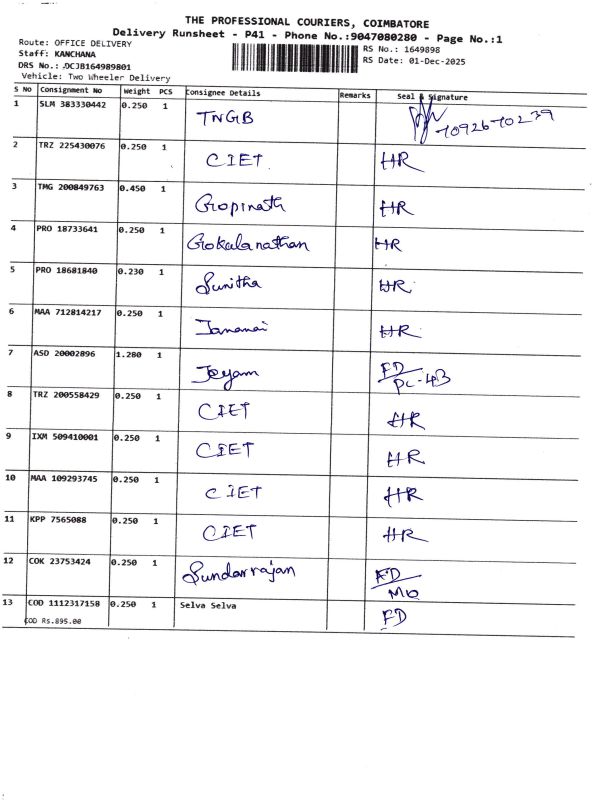 THE PROFESSIONAL COURIERS, COIMBATORE
Delivery Runsheet - P41 - Phone No.:9047080280 - Page No.:1
Route: OFFICE DELIVERY
RS No.: 1649898
Staff: KANCHANA
RS Date: 01-Dec-2025
DRS No.: DCJB164989801
Vehicle: Two Wheeler Delivery
S No Consignment No Weight PCS Consignee Details Remarks Seal & Signature
1 SLM 383330442 0.250 1 TNGB 7092670239
2 TRZ 225430076 0.250 1 CIET HR
3 TMG 200849763 0.450 1 Gopinath HR
4 PRO 18733641 0.250 1 Gokulanathan HR
5 PRO 18681840 0.230 1 Sunitha HR
6 MAA 712814217 0.250 1 HR
7 ASD 20002896 1.280 1 Jeyam FD
PC-43
8 TRZ 200558429 0.250 1 CIET HR
9 IXM 509410001 0.250 1 CIET HR
10 MAA 109293745 0.250 1 CIET HR
11 KPP 7565088 0.250 1 CIET HR
12 COK 23753424 0.250 1 Sundarrajan FD
MO
13 COD 1112317158 0.250 1 Selva Selva FD
COD Rs.895.00